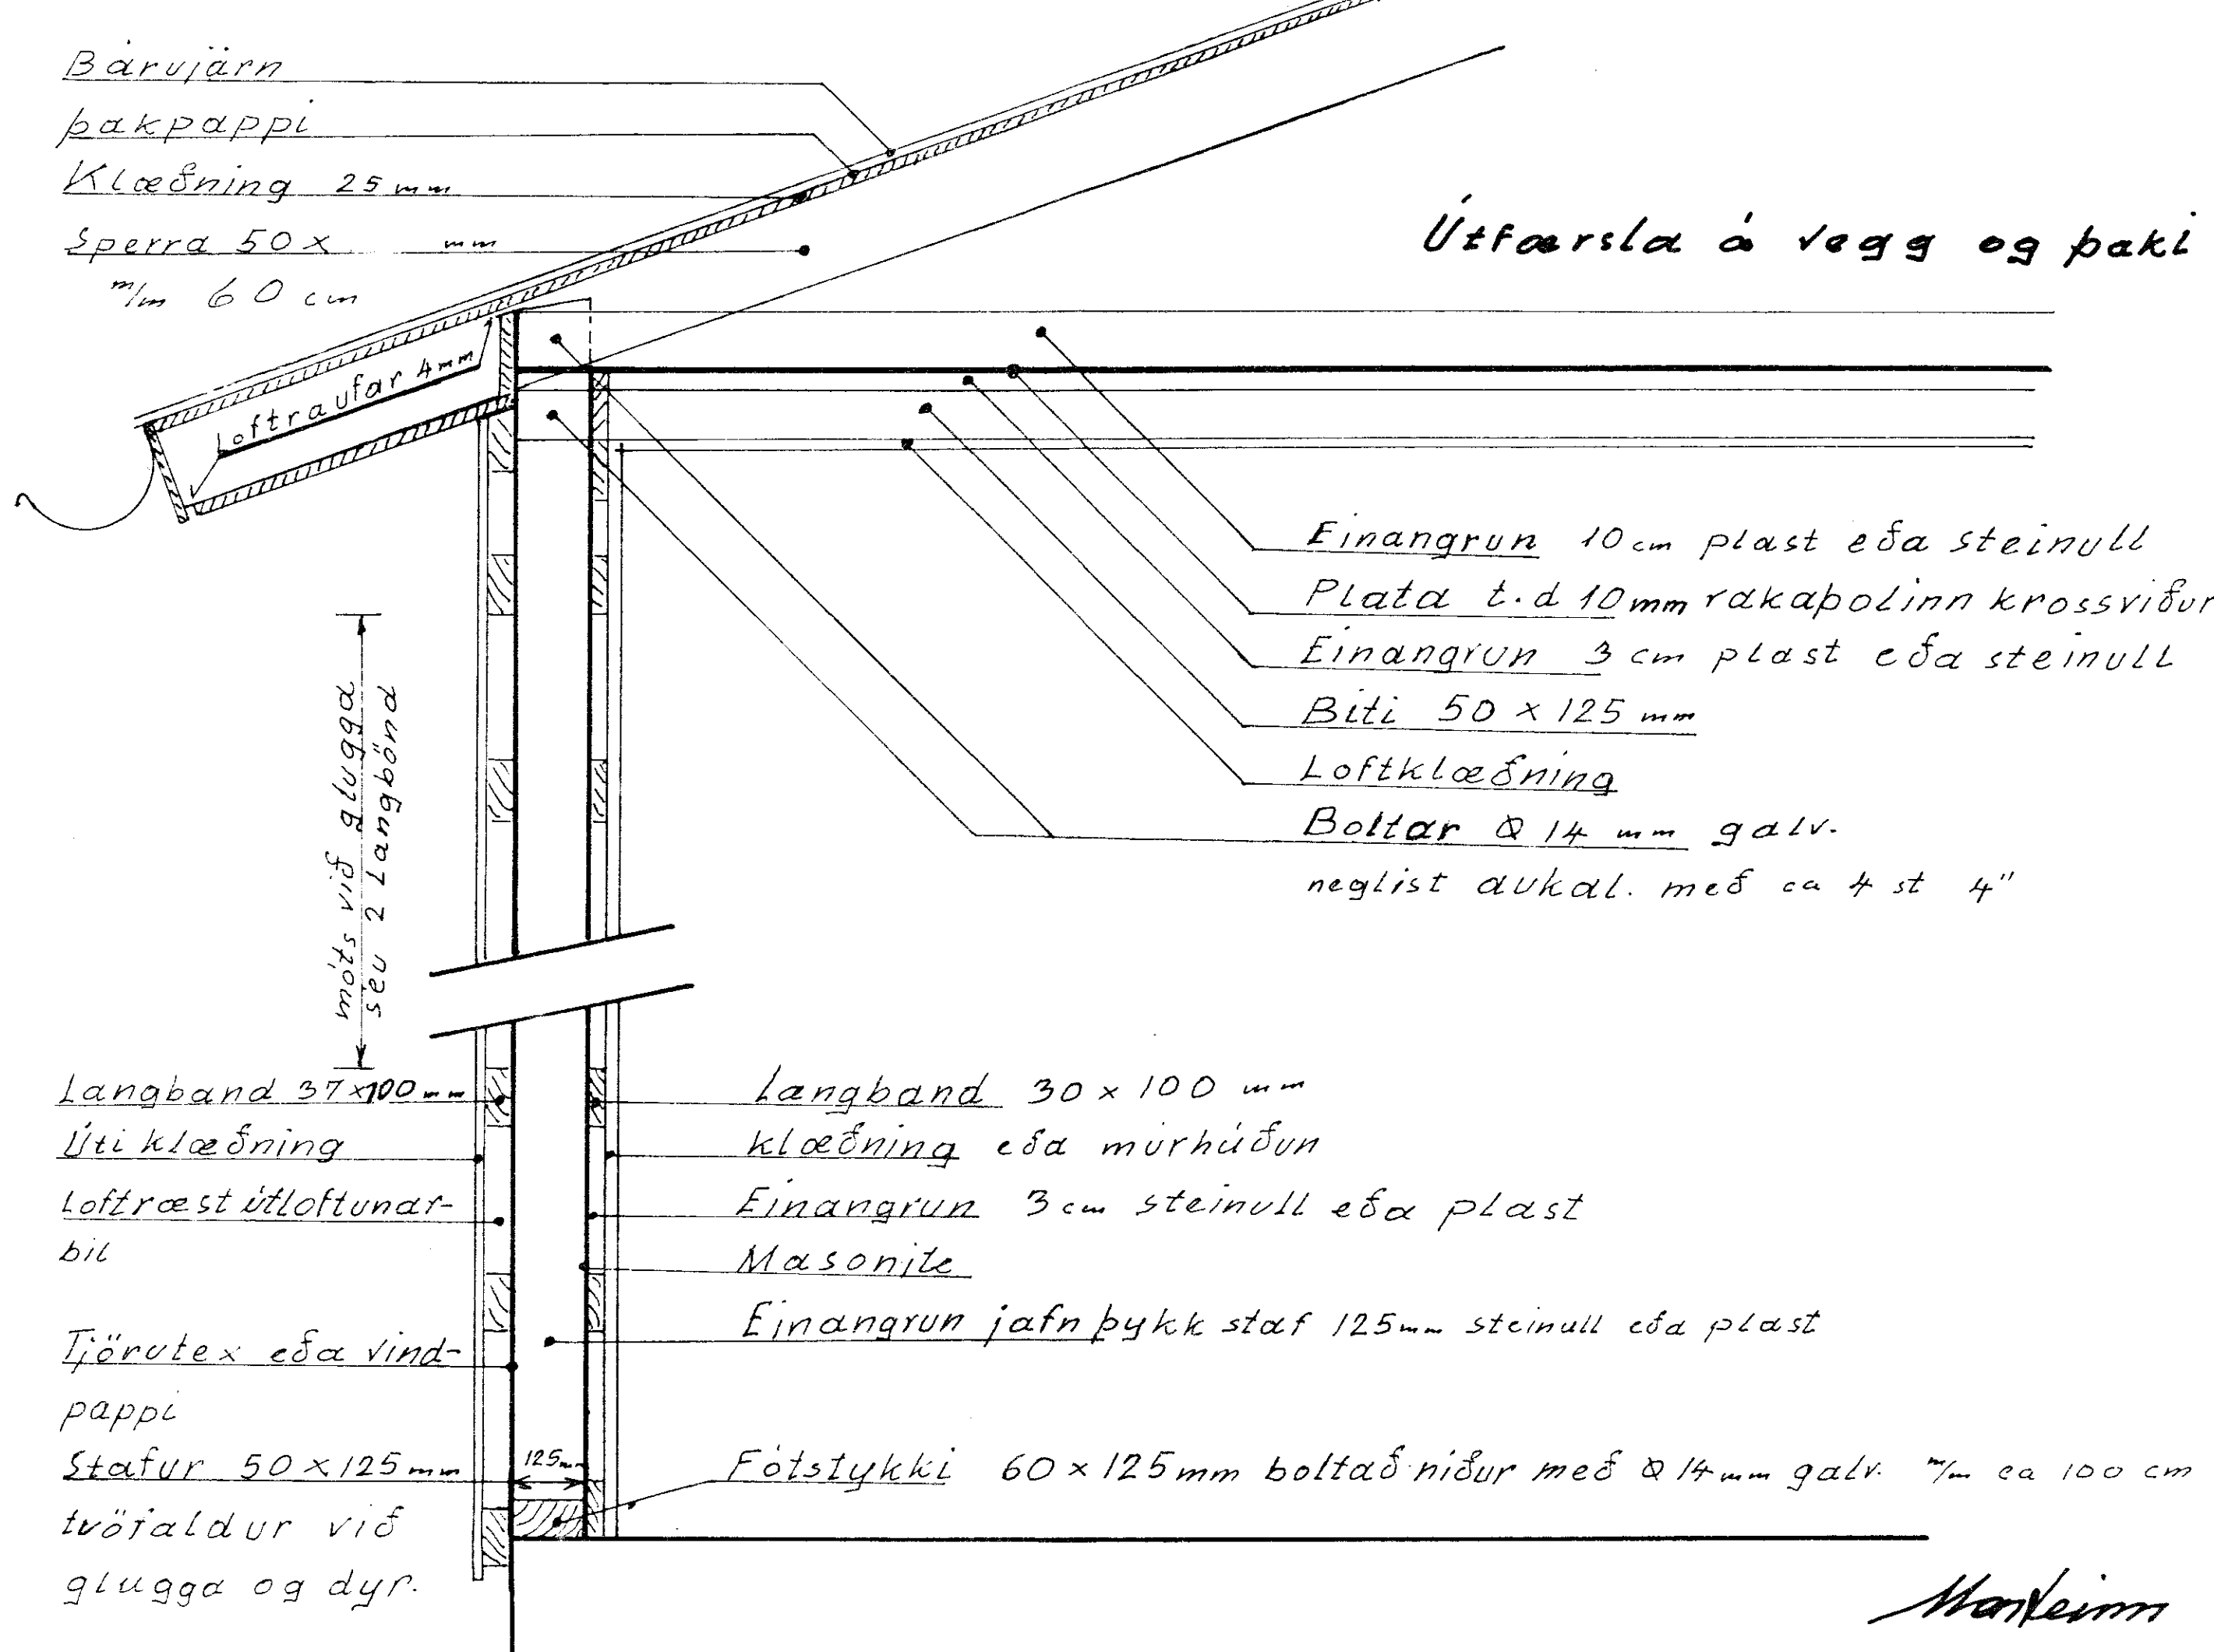 Bárujárn
þakpappi
Klæðning 25 mm
Sperra 50 x mm
m/m 60 cm
Útfærsla á vegg og þaki
Loftraufar 4mm
Einangrun 10 cm plast eða steinull
Plata t.d 10mm rakaþolinn krossviður
Einangrun 3 cm plast eða steinull
Biti 50 x 125 mm
Loftklæðning
Boltar Ø 14 mm galv.
neglist aukal. með ca 4 st 4"
móts við glugga
séu 2 Langbönd
Langband 37x100 mm
Úti klæðning
Loftræst útloftunar-
bil
Tjörutex eða vind-
pappi
Stafur 50 x 125 mm
tvöfaldur við
glugga og dyr.
Langband 30 x 100 mm
klæðning eða múrhúðun
Einangrun 3 cm steinull eða plast
Masonite
Einangrun jafn þykk staf 125mm steinull eða plast
125mm
Fótstykki 60 x 125mm boltað niður með Ø 14 mm galv. m/m ca 100 cm